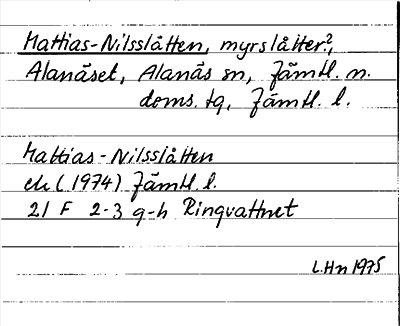 Mattias-Nilsslåtten, myrslåtter?,
Alanäset, Alanäs sn, Jämtl. n.
doms. tg, Jämtl. l.
Mattias-Nilsslåtten
ek (1974) Jämtl. l.
21 F 2-3 g-h Ringvattnet
L.Hn 1975